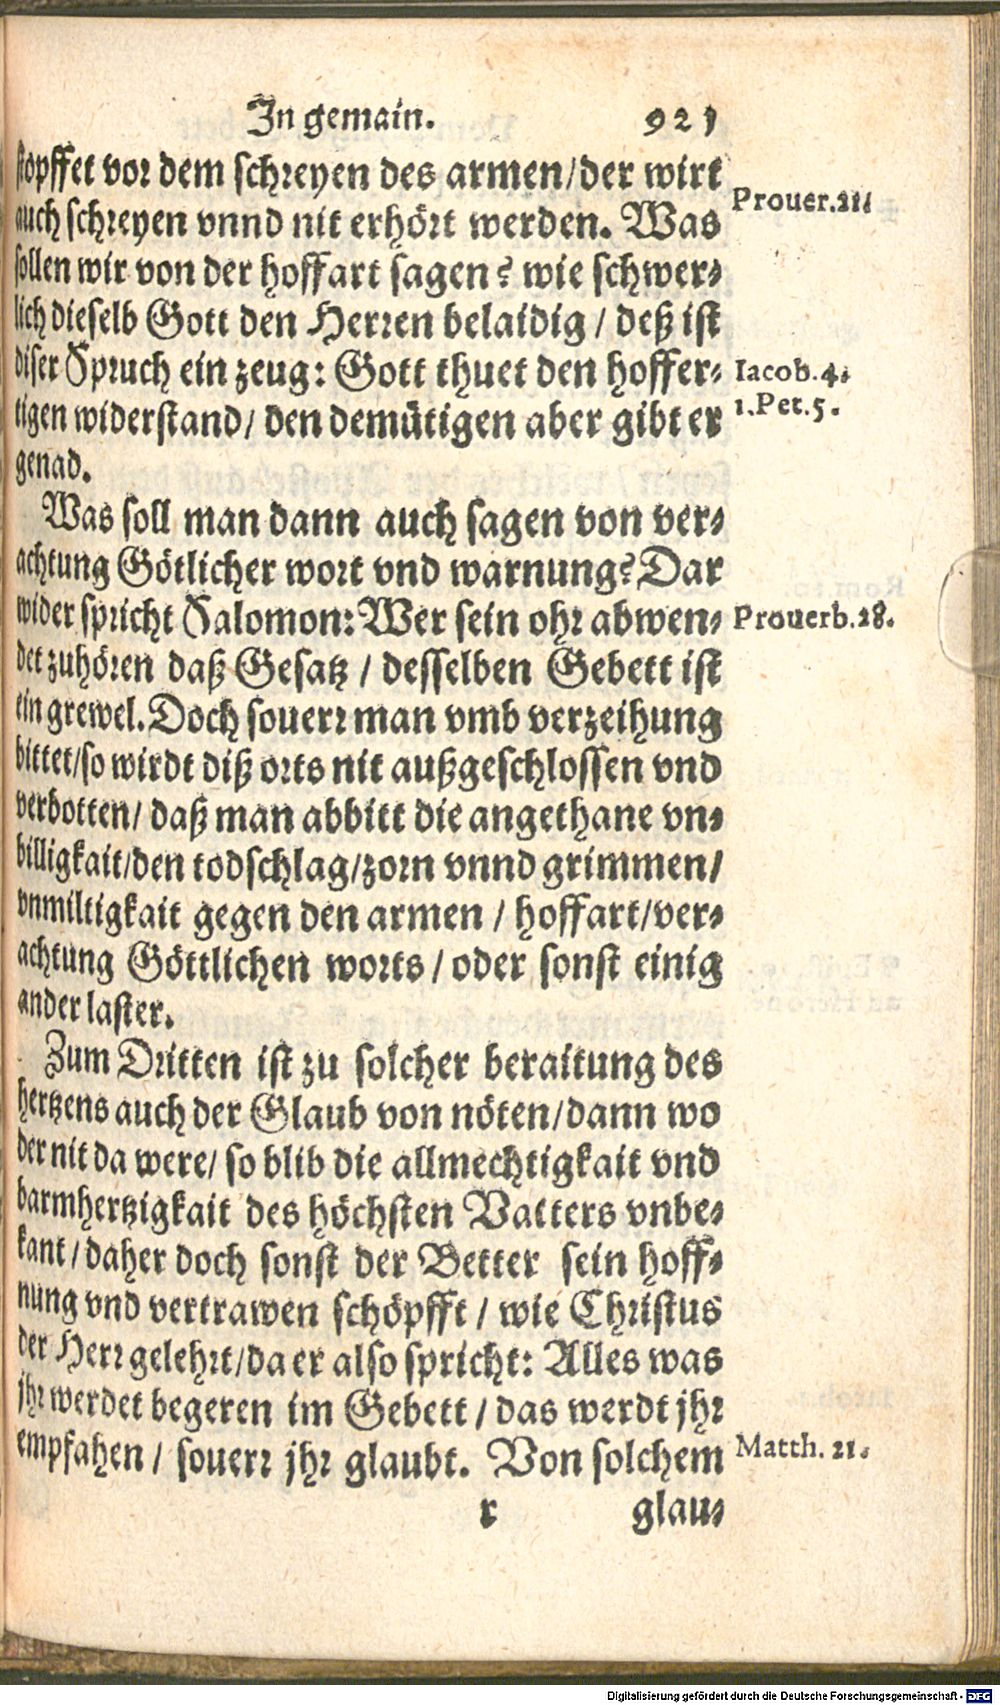 In gemain. 921
stopffet vor dem schreyen des armen/der wirt
auch schreyen vnnd nit erhört werden. Was
Prouer.21.
sollen wir von der hoffart sagen? wie schwer⸗
lich dieselb Gott den Herren belaidig / deß ist
diser Spruch ein zeug: Gott thuet den hoffer⸗
Iacob.4.
tigen widerstand/ den demütigen aber gibt er
1.Pet.5.
genad.
Was soll man dann auch sagen von ver⸗
achtung Götlicher wort vnd warnung? Dar
wider spricht Salomon: Wer sein ohr abwen⸗
Prouerb.28.
det zuhören daß Gesatz / desselben Gebett ist
ein grewel. Doch souerr man vmb verzeihung
bittet/so wirdt diß orts nit außgeschlossen vnd
verbotten/ daß man abbitt die angethane vn⸗
billigkait/den todschlag/zorn vnnd grimmen/
vnmiltigkait gegen den armen / hoffart/ver⸗
achtung Göttlichen worts / oder sonst einig
ander laster.
Zum Dritten ist zu solcher beraitung des
hertzens auch der Glaub von nöten/dann wo
der nit da were/ so blib die allmechtigkait vnd
barmhertzigkait des höchsten Vatters vnbe⸗
kant/daher doch sonst der Better sein hoff⸗
nung vnd vertrawen schöpfft / wie Christus
der Herr gelehrt/da er also spricht: Alles was
jhr werdet begeren im Gebett / das werdt jhr
empfahen / souerr jhr glaubt. Von solchem
Matth. 21.
r glau⸗
Digitalisierung gefördert durch die Deutsche Forschungsgemeinschaft - DFG